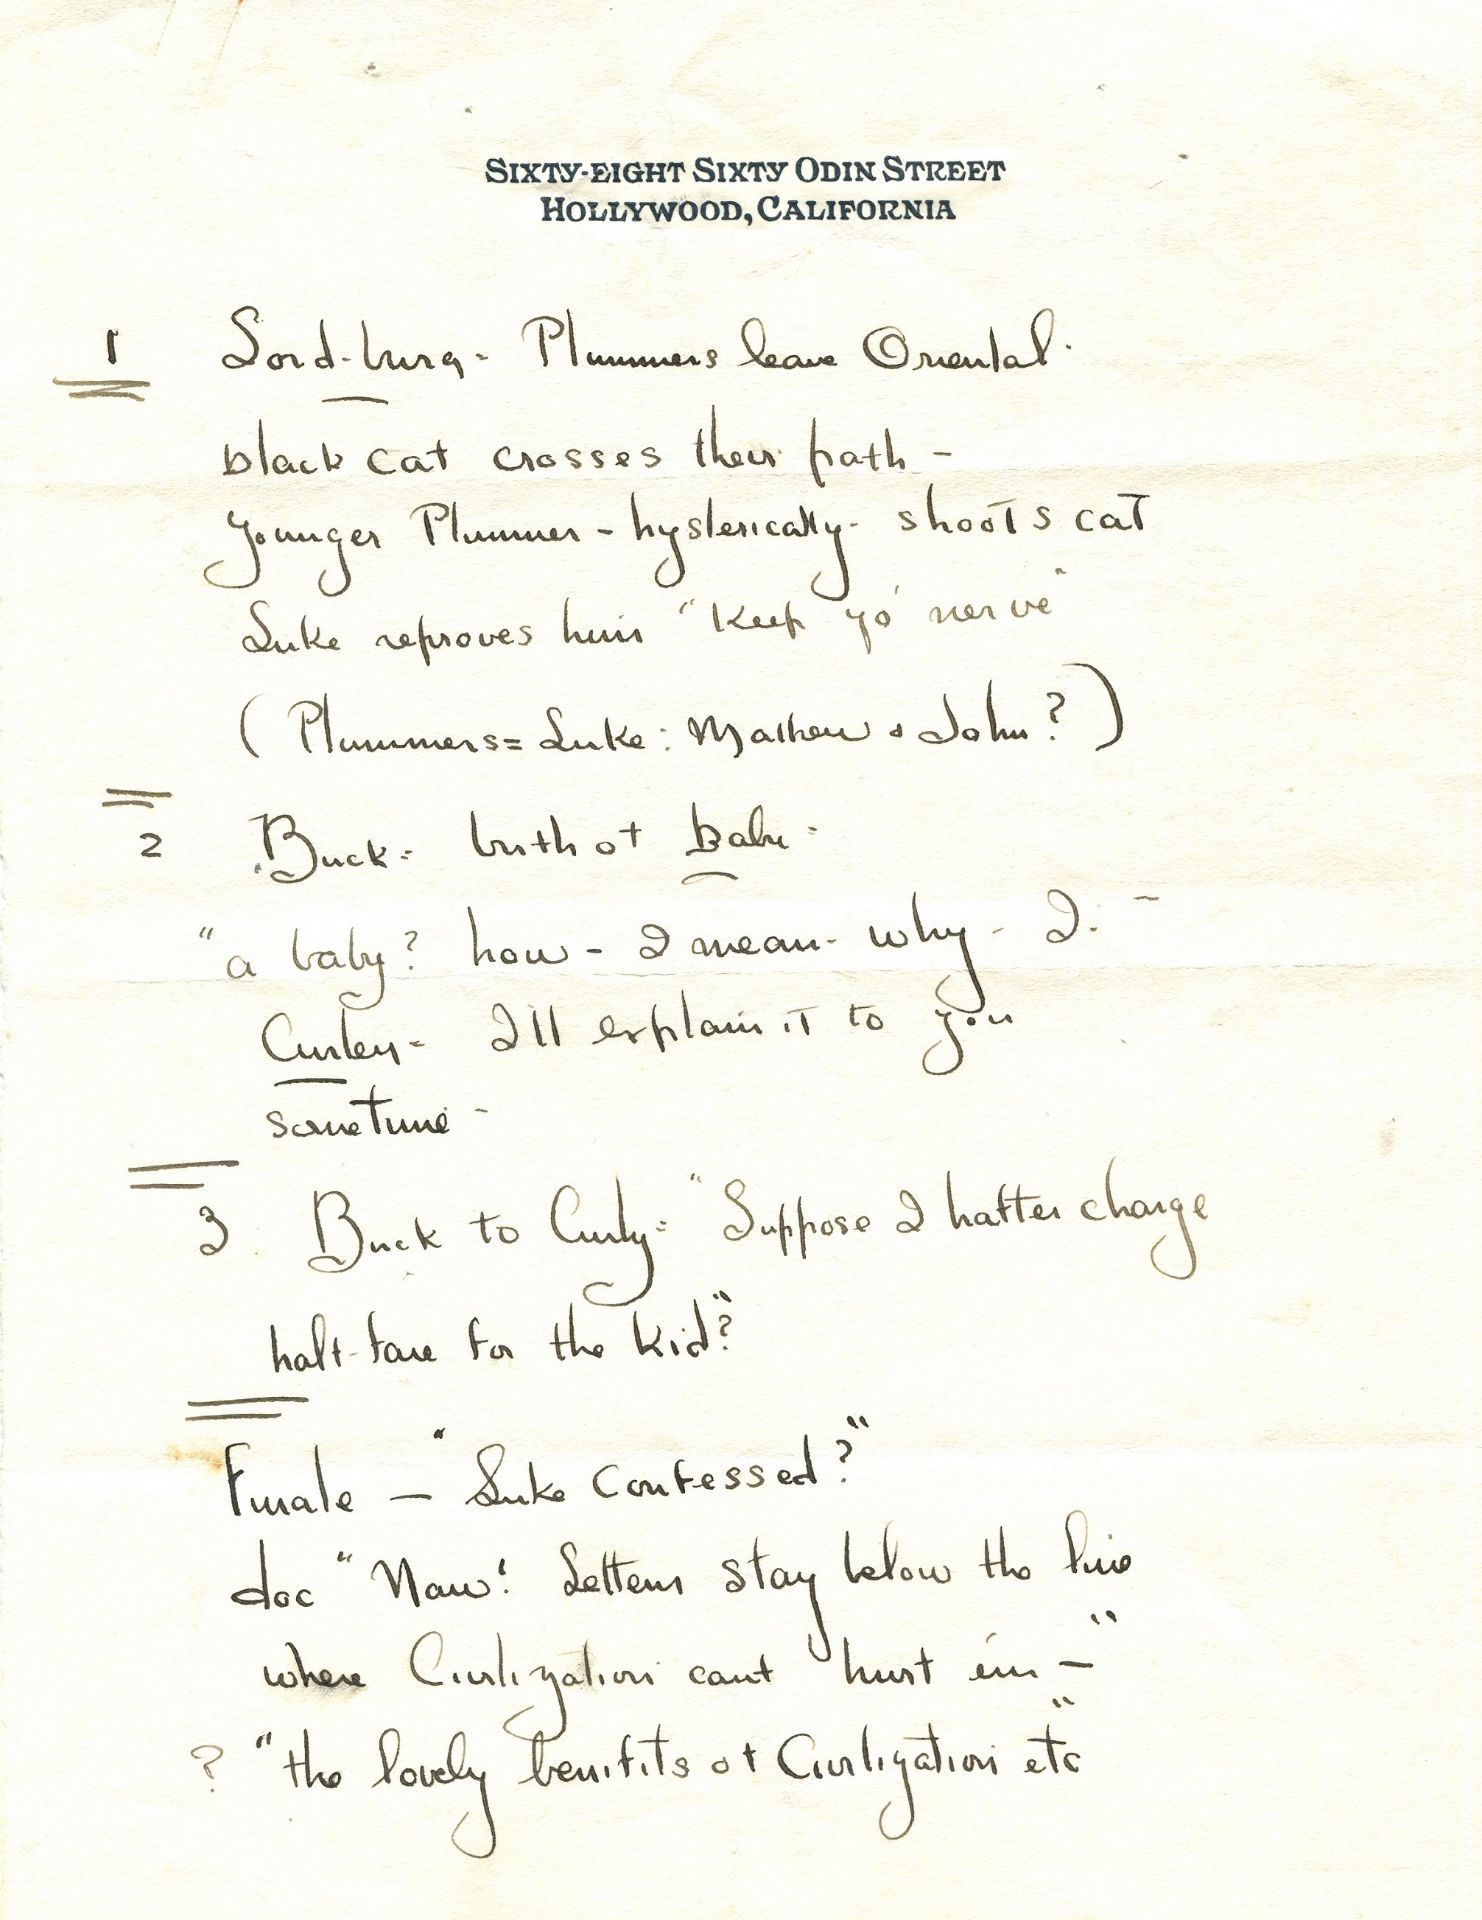 SIXTY-EIGHT SIXTY ODIN STREET
HOLLYWOOD, CALIFORNIA
1 Lord-burg - Plummers leave Oriental.
black cat crosses their path -
younger Plummer - hysterically - shoots cat
Luke reproves him "Keep yo' nerve"
(Plummers = Luke: Mathew & John?)
2 Buck = birth of Babe -
"a baby? how - I mean - why - I. -
Curley - I'll explain it to you
sometime -
3 Buck to Curly = "Suppose I hafter charge
half-fare for the kid?"
Finale - "Luke confessed?"
doc "Naw! Letters stay below the line
where Civilization cant hurt em -"
? "the lovely benifits of Civilization etc"